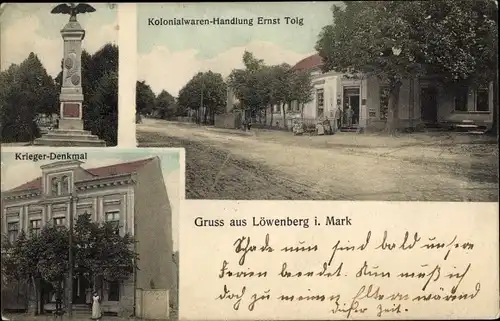 Kolonialwaren-Handlung Ernst Tolg
Krieger-Denkmal
Gruss aus Löwenberg i. Mark
Schade nun sind bald unsre
Ferien beendet. Nun muß ich
doch zu meinen Eltern während
dieser Zeit.